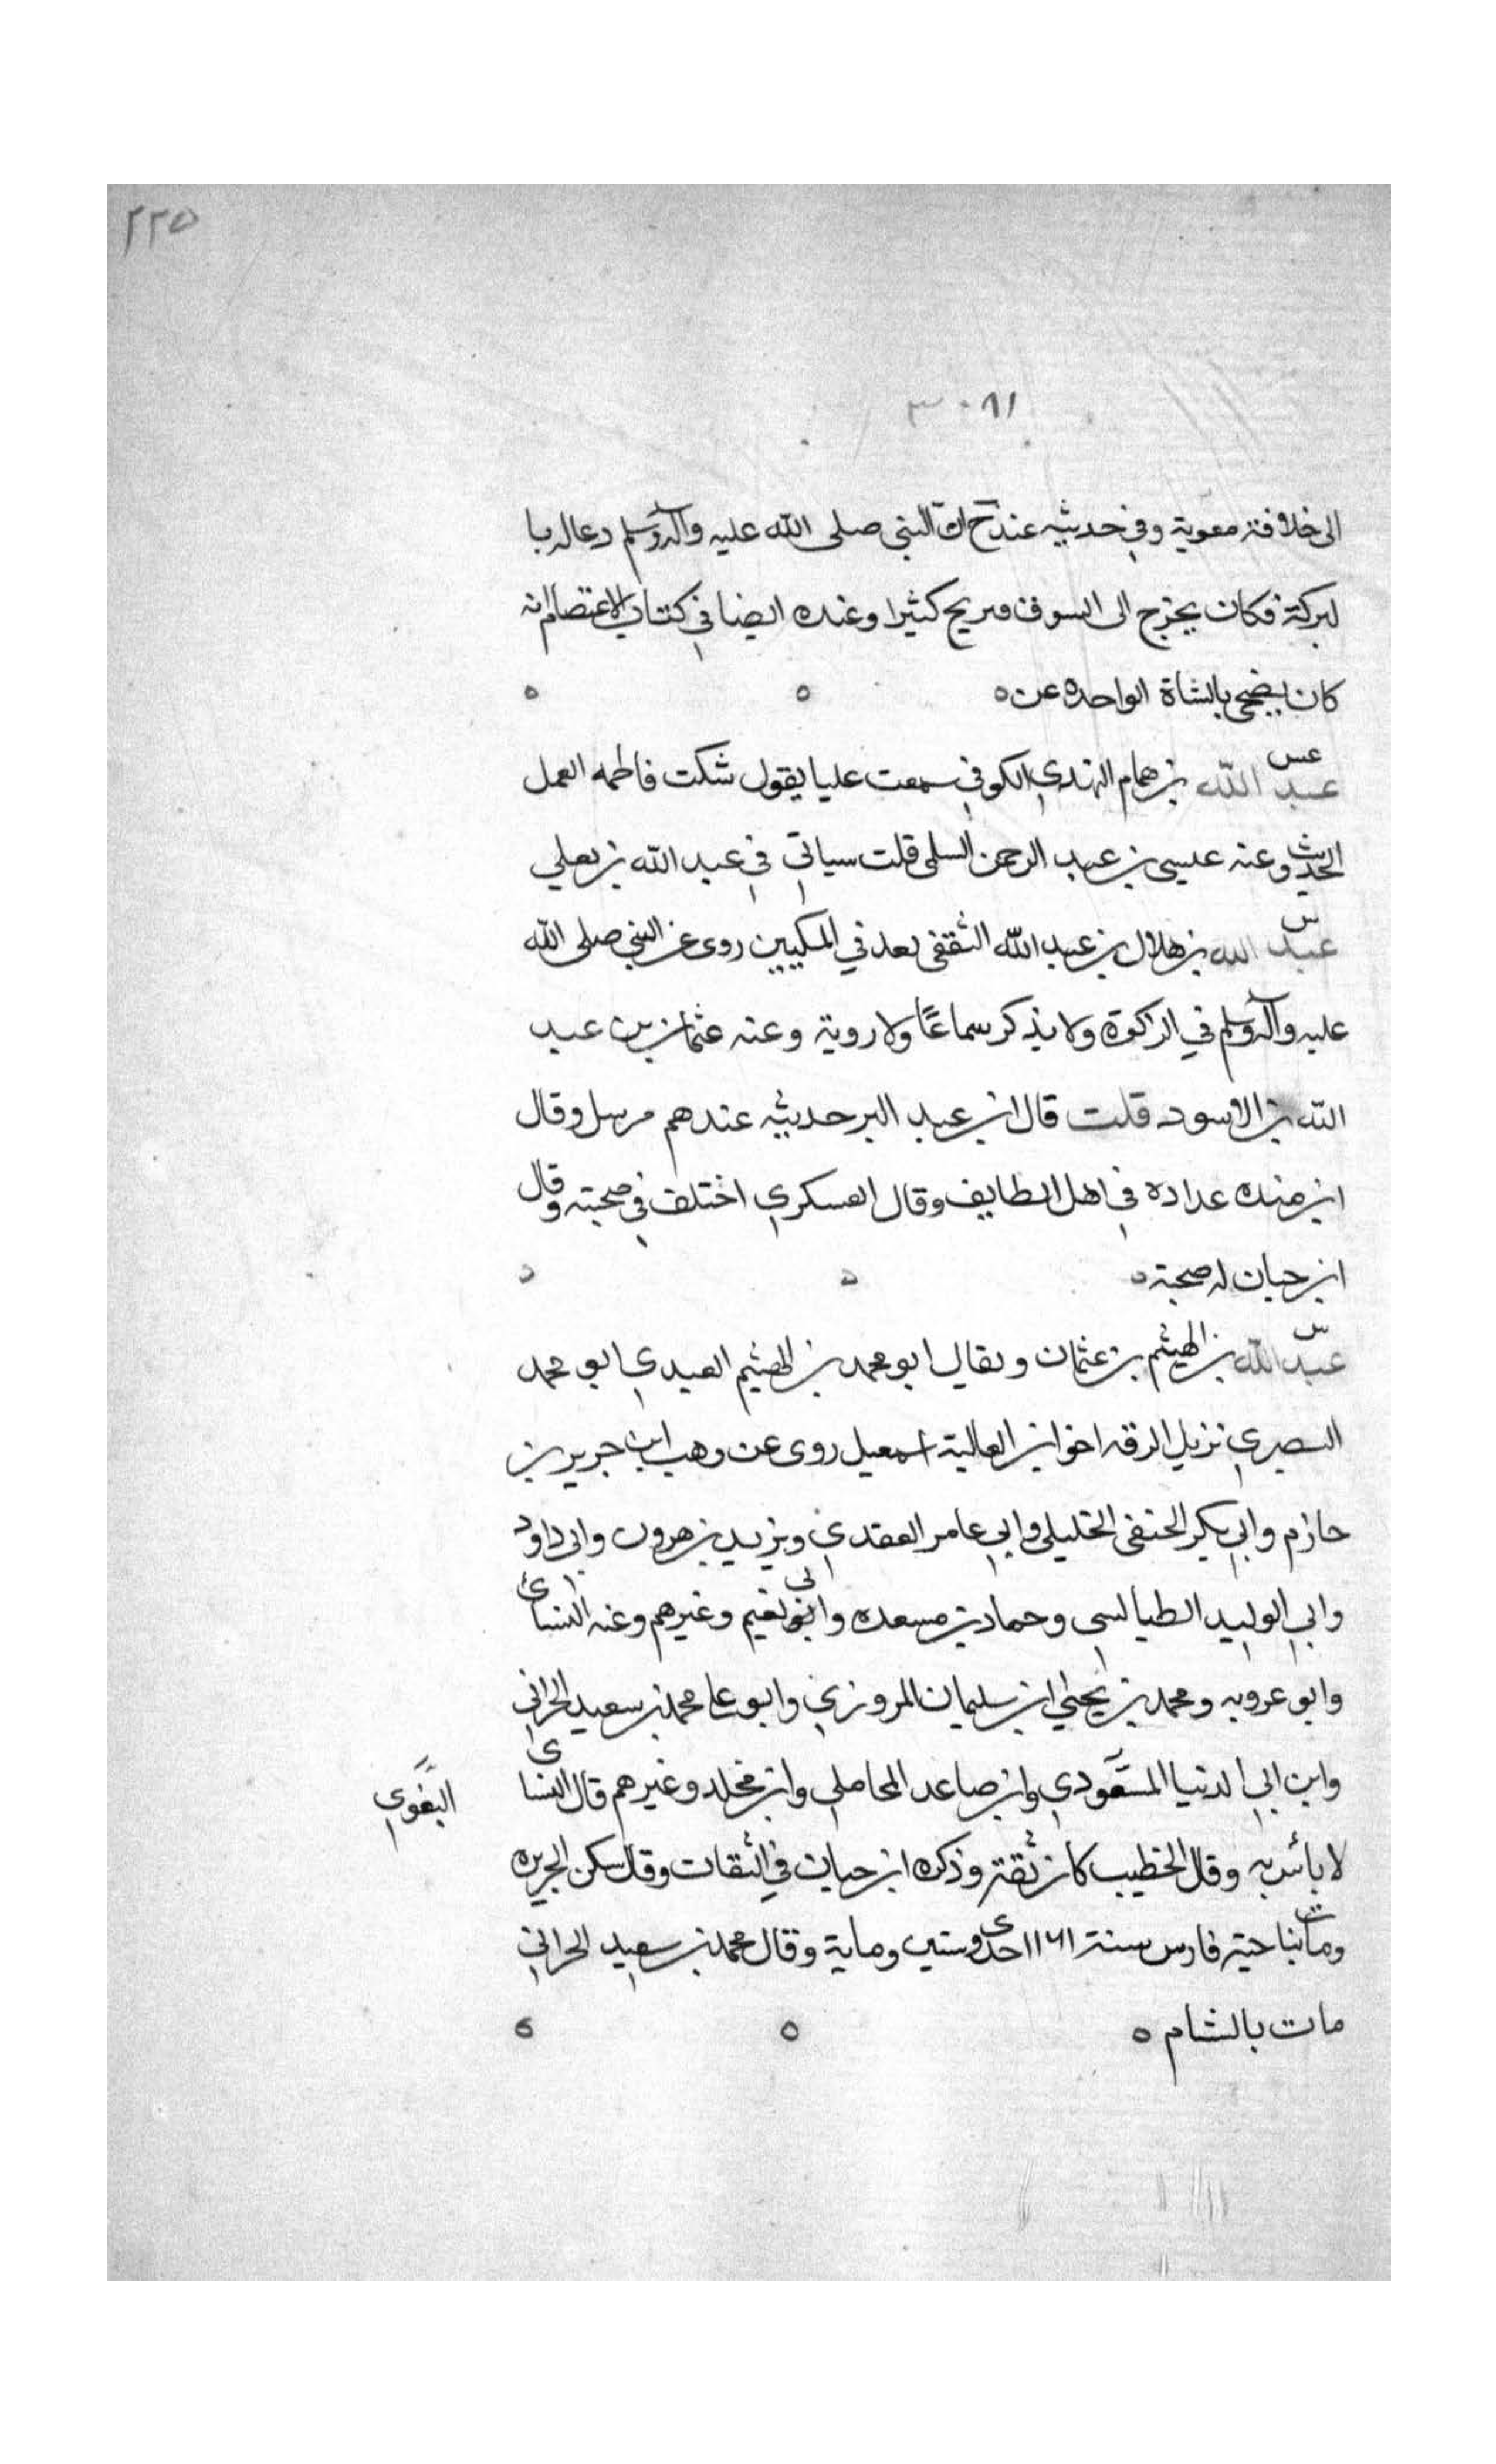 ٢٢٥
٣٠٨١
الى خلافة معوية وفي حديثيه عند خ ان النبي صلى الله عليه وآله وسلم دعا له با
لبركة فكان يخرج الى السوق فيربح كثيرا وعنده ايضا في كتاب الاعتصام انه
كان يضحى بالشاة الواحده عن ه ه ه
عس
عبد الله بن همام النهدي الكوفي سمعت عليا يقول شكت فاطمه العمل
الحديث وعنه عيسى بن عبد الرحمن السلمى قلت سياتي في عبد الله بن يعلي
س
عبد الله بن هلال بن عبد الله الثقفى يعد في المكيين روى عن النبي صلى الله
عليه وآله وسلم في الزكوة ولا يذكر سماعًا ولا روية وعنه عثمان بن عبد
الله بن الاسود قلت قال ابن عبد البر حديثيه عندهم مرسل وقال
ابن منده عداده في اهل الطايف وقال العسكري اختلف في صحبته وقال
ابن حبان له صحبة ه ه ه
س
عبد الله بن الهيثم بن عثمان ويقال ابو محمد بن الهيثم العبدي ابو محمد
البصري نزيل الرقه اخو ابن العالية اسمعيل روى عن وهب ابن جرير بن
حازم وابي بكر الحنفى الخليلى وابي عامر العقدي ويزيد بن هرون وابى داود
وابي الوليد الطيالسى وحماد بن مسعده وابى نعيم وغيرهم وعنه النسائ
وابو عروبه ومحمد بن يحيى ابن سليمان المروزي وابو عا محمد بن سعيد الحراني
وابن ابي الدنيا المسعودي وابن صاعد المحاملي وابن مخلد وغيرهم قال النساى
البغوي
لا بأس به وقال الخطيب كان ثقة وذكره ابن حبان في الثقات وقال سكن الجزيره
ومات بناحية فارس سنة ١١٦١ احدى وستين وماية وقال محمد بن سعيد الحراني
مات بالشام ه ه ه